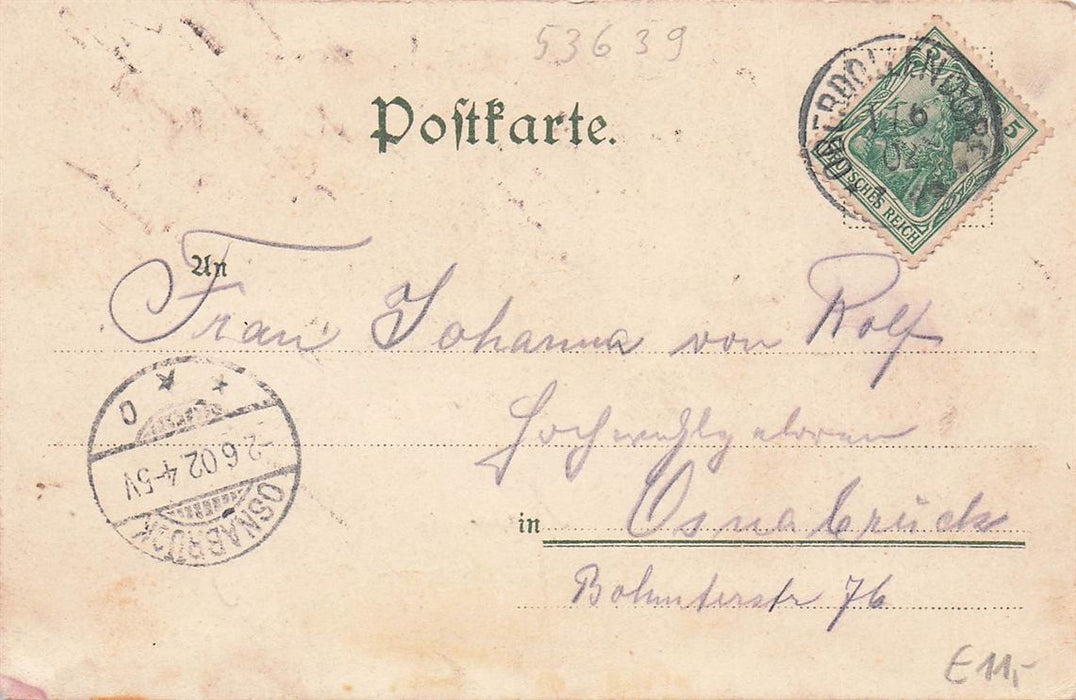 53639
Postkarte.
OBERDOLLENDORF
1.6
02
5
DEUTSCHES REICH
An
Frau Johanna von Rolf
Hochwohlgeboren
in Osnabrück
Bohmterstr 76
2.6.02.4-5V
OSNABRÜCK
E 11,-